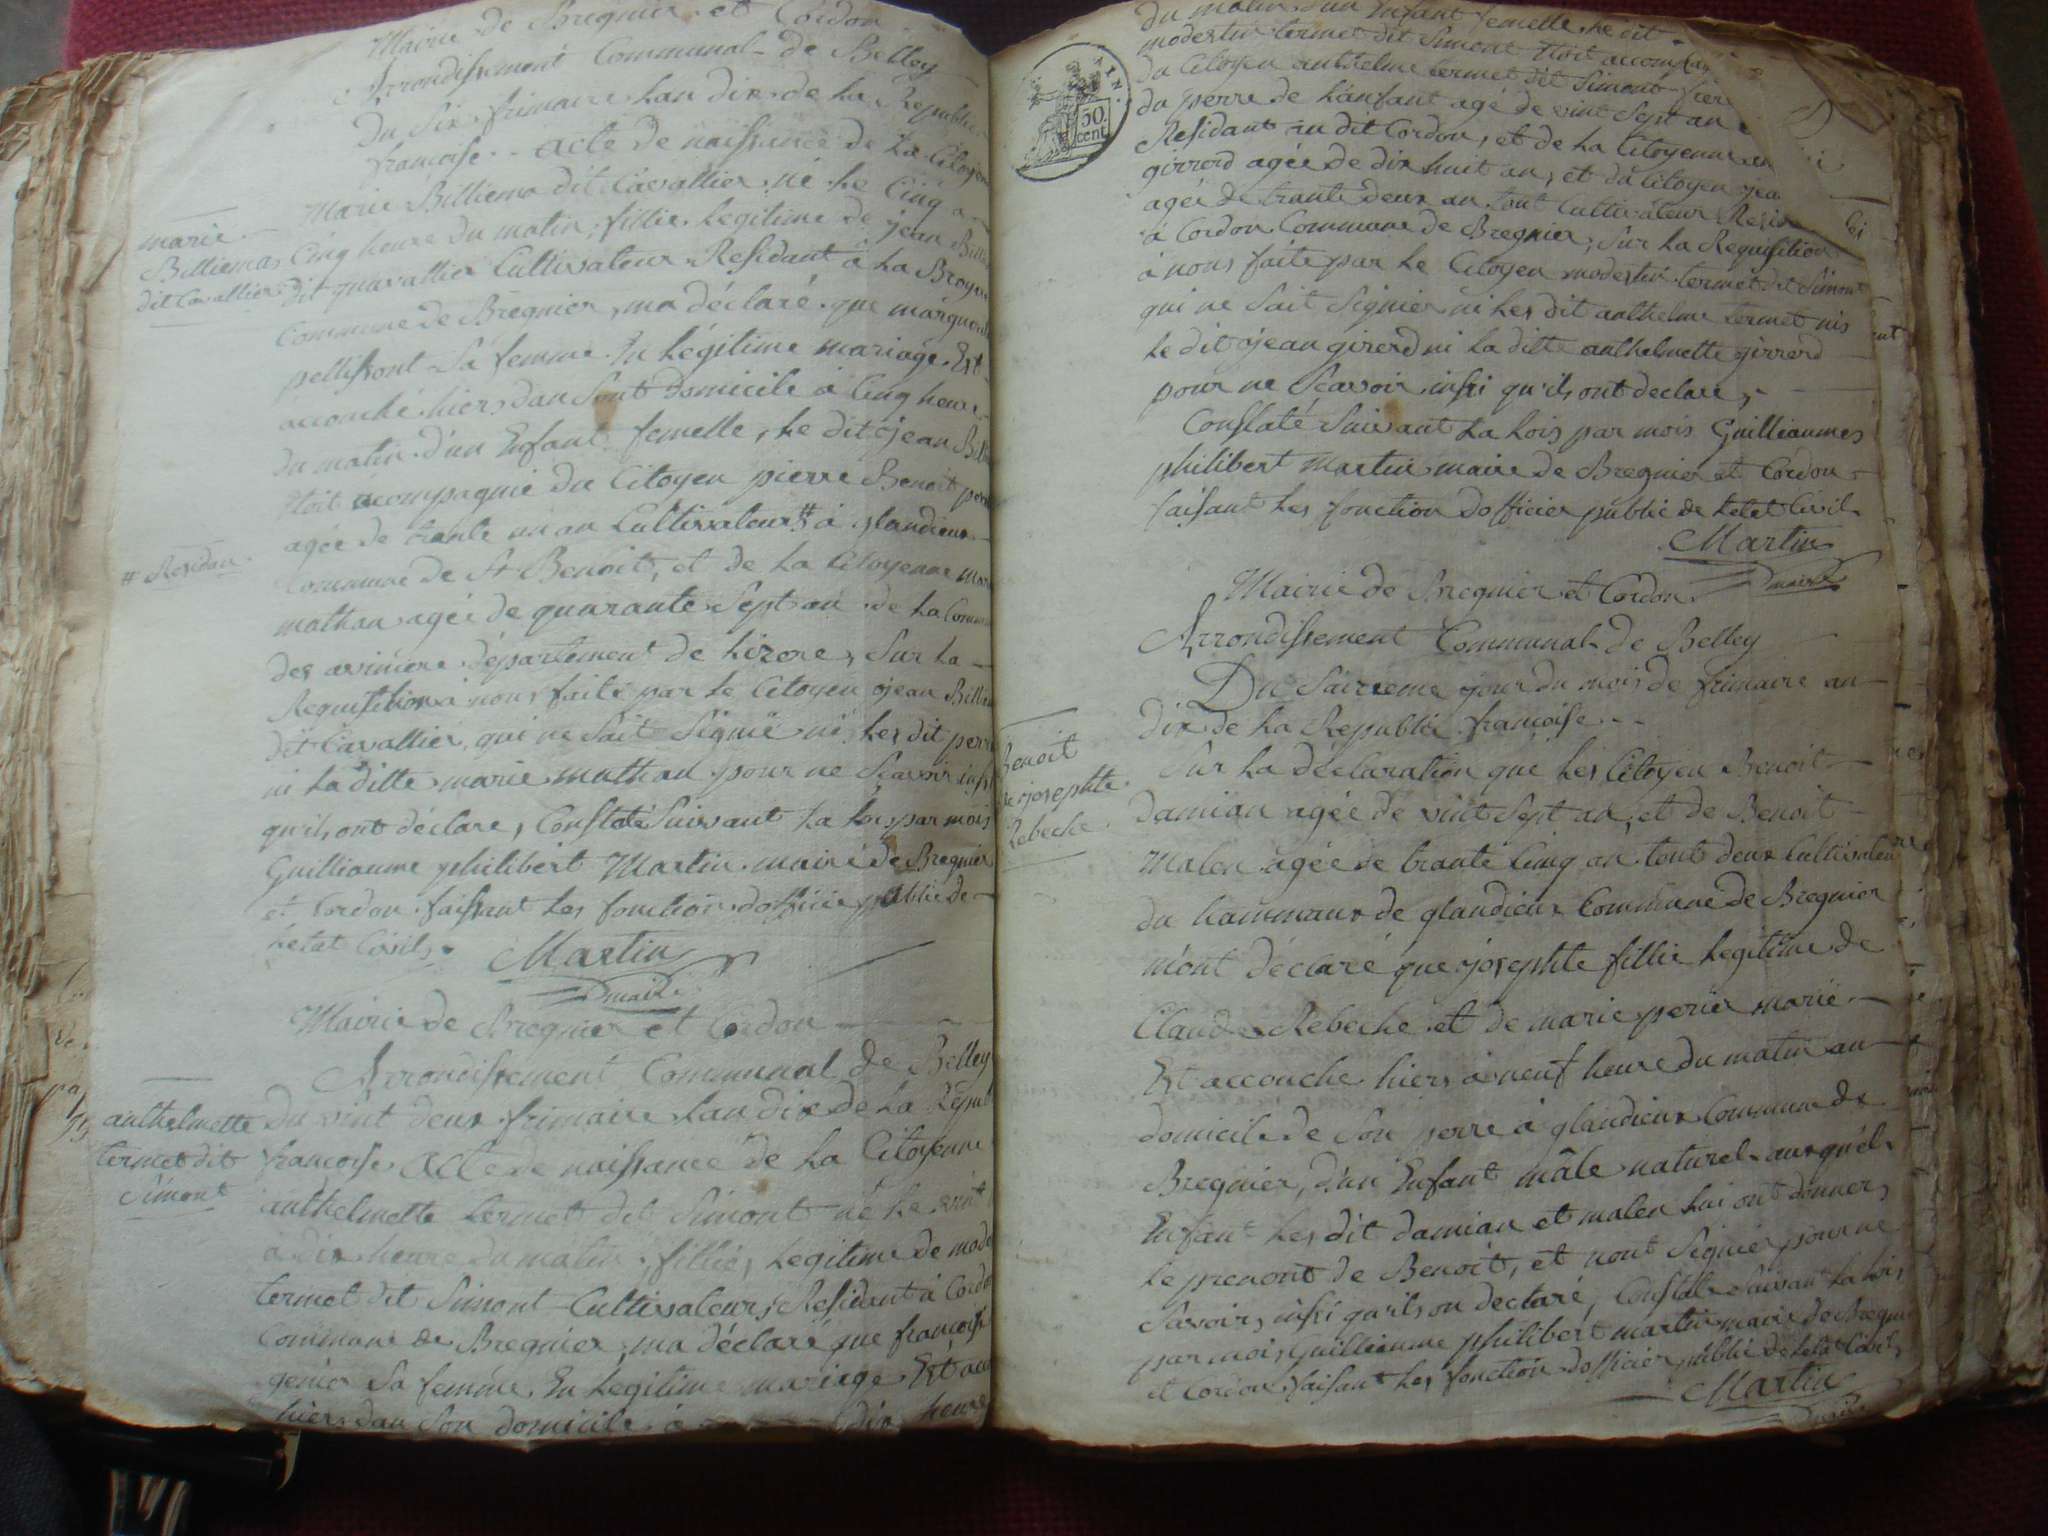 Mairie de Bregnier et Cordon
Arrondissement Communal de Belley
Du Six frimaire Lan dix de La Republi
françoise. acte de naissance de La Citoyen
Marie Billiema dit Cavallier né Le Cinq a
marie
Billiema
dit Cavallier
Cinq heure du matin, fillie Legitime de jean Bill
dit quavallier Cultivateur Residant à La Broye
Commune de Bregnier, ma déclaré que marguer
pellissont Sa femme En Légitime mariage Est
accouché hier dan Sont Domicile à Cinq heure
du matin d'un Enfant femelle, Le dit jean Bill
Etoit acompagnié du Citoyen pierre Benoit per
agée de trante un an Cultivateur # à glandieux
# Residan
Commune de St Benoit, et de La Citoyenne mar
mathan agée de quarante Sept an de La Comm
des avinière département de Lizere, Sur La
Requisition à nous faite par Le Citoyen jean Billie
dit Cavallier, qui ne Sait Signié ni Les dit perr
ni La ditte marie mathan pour ne Scavoir insi
qu'il ont déclare, Constaté Suivant La Lois par mois
Guilliaume philibert Martin maire de Bregnier
et Cordon faisant Les fonction dofficie publié de
Letat Civil.
Martin
maire
Mairie de Bregnier et Cordon
Arrondissement Communal de Belley
anthelmette
termet dit
Simont
Du vint deux frimaire Lan dix de La Republ
francoise acte de naissance de La Citoyenne
anthelmette termet dit Simont né Le vint
à dix heure du matin, fillie Legitime de mode
termet dit Simont Cultivateur, Residant à Cordo
Commune de Bregnier, ma déclaré que françoise
génie Sa femme En Legitime mariage Est acc
hier dan Son domicile à dix heure
AIN.
50.
cent.
du matin d'un Enfant femelle, Le dit
modestin termet dit Simont Etoit accompag
du Citoyen anthelme termet dit Simont frer
du perre de L'anfant agé de vint Sept an
Residant au dit Cordon, et de La Citoyenne an
girrerd agée de dix huit an, et du Citoyen jea
agée de trante deux an tout Cultivateur Resid
à Cordon Commune de Bregnier, Sur La Requisition
à nous faite par Le Citoyen modestin termet dit Simont
qui ne Sait Signier ni Les dit anthelme termet nis
Le dit jean girerd ni La ditte anthelmette girrerd
pour ne Scavoir insi qu'il ont declare,
Constaté Suivant La Lois par mois Guilliaumes
philibert Martin maire de Bregnier et Cordon
faisant Les fonction dofficier publié de Letat Civil.
Martin
maire
Mairie de Bregnier et Cordon
Arrondissement Communal de Belley
Du Saizieme jour du mois de frimaire an
dix de La Republi françoise
Benoit
de josephte
Rebeche
Sur La déclaration que Les Citoyen Benoit
damian agée de vint Sept an, et de Benoit
Malen agée de trante Cinq an tout deux Cultivateur
du hammaux de glandieux Commune de Bregnier
m'ont déclaré que josephte fillie Legitime de
Claude Rebeche et de marie perier marié
Est accouche hier à neuf heure du matin au
domicile de Son perre à glandieux Commune de
Bregnier, d'un Enfant mâle naturel auquél
Enfant Les dit damian et malen Lui ont donner
Le prenont de Benoit, et nont Signier pour ne
Savoir, insi qu'ils on declaré, Constaté Suivant La Lois
par mois Guilliaume philibert martin maire de Bregnie
et Cordon faisant Les fonction dofficier publié de Letat Civil,
Martin
maire